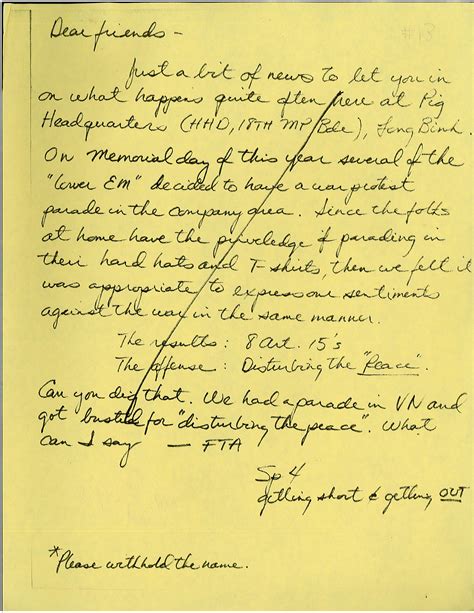 #13
Dear friends -
Just a bit of news to let you in
on what happens quite often here at Pig
Headquarters (HHD, 18TH MP Bde), Long Binh.
On Memorial day of this year several of the
"lower EM" decided to have a war protest
parade in the company area. Since the folks
at home have the priveledge of parading in
theri hard hats and T-shirts, then we felt it
was appropriate to express our sentiments
against the war in the same manner.
The results: 8 Art. 15's
The offense: Disturbing the "Peace".
Can you dig that. We had a parade in VN and
got busted for "disturbing the peace". What
can I say — FTA
Sp 4
getting short & getting OUT
*Please withhold the name.